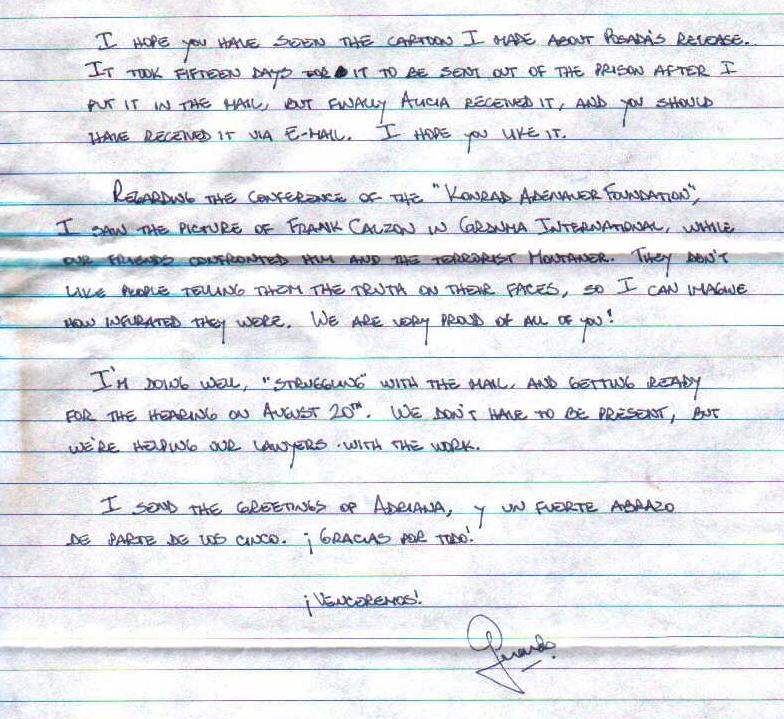 I HOPE YOU HAVE SEEN THE CARTOON I MADE ABOUT POSADA'S RELEASE.
IT TOOK FIFTEEN DAYS FOR IT TO BE SENT OUT OF THE PRISON AFTER I
PUT IT IN THE MAIL, BUT FINALLY ALICIA RECEIVED IT, AND YOU SHOULD
HAVE RECEIVED IT VIA E-MAIL. I HOPE YOU LIKE IT.
REGARDING THE CONFERENCE OF THE "KONRAD ADENAUER FOUNDATION",
I SAW THE PICTURE OF FRANK CALZON IN GRANMA INTERNATIONAL, WHILE
OUR FRIENDS CONFRONTED HIM AND THE TERRORIST MONTANER. THEY DON'T
LIKE PEOPLE TELLING THEM THE TRUTH ON THEIR FACES, SO I CAN IMAGINE
HOW INFURATED THEY WERE. WE ARE VERY PROUD OF ALL OF YOU!
I'M DOING WELL, "STRUGGLING" WITH THE MAIL, AND GETTING READY
FOR THE HEARING ON AUGUST 20TH. WE DON'T HAVE TO BE PRESENT, BUT
WE'RE HELPING OUR LAWYERS WITH THE WORK.
I SEND THE GREETINGS OF ADRIANA, Y UN FUERTE ABRAZO
DE PARTE DE LOS CINCO. ¡GRACIAS POR TODO!
¡VENCEREMOS!
Gerardo